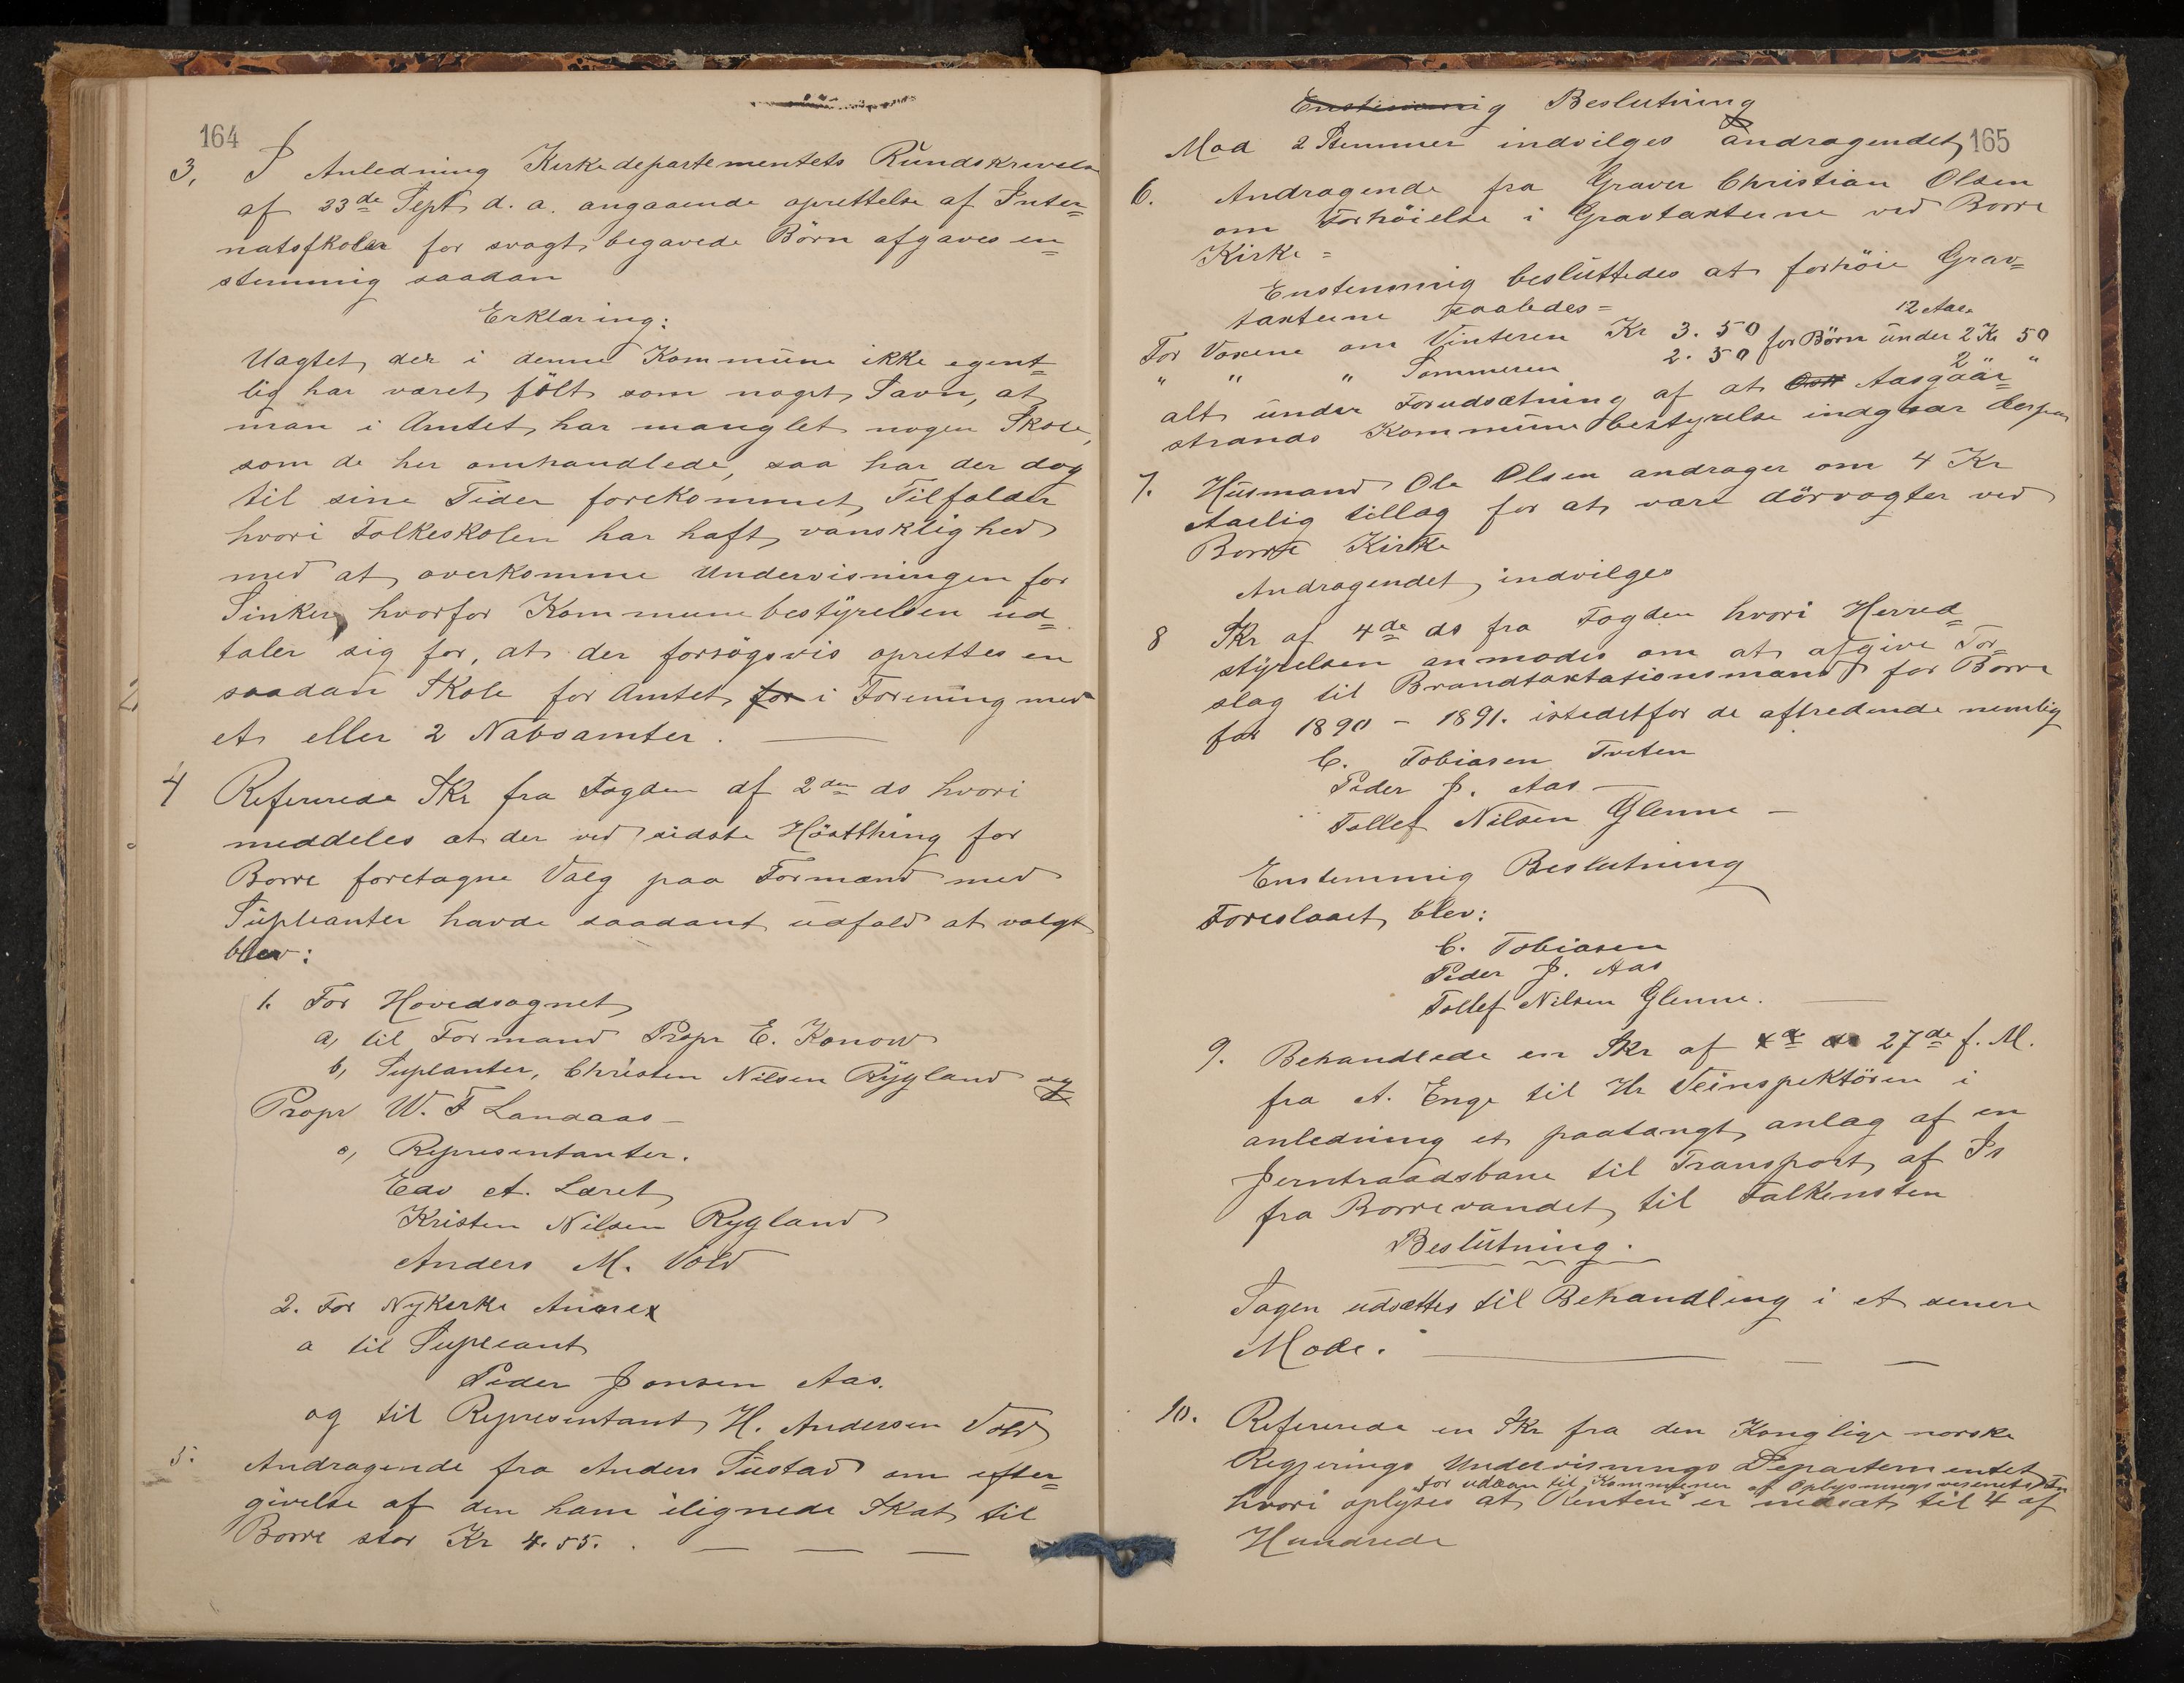 164
3, I Anledning Kirkedepartementets Rundskrivelse
af 23de Sept d. a. angaaende oprettelse af Inter=
natsskoler for svagt begavede Börn afgaves en=
stemmig saadan
Erklæring:
Uagtet der i denne Kommune ikke egent=
lig har været fölt som noget Savn, at
man i Amtet har manglet nogen Skole,
som de her omhandlede, saa har der dog
til sine Tider forekommet Tilfælder
hvori Folkeskolen har haft vansklighed
med at overkomme Undervisningen for
Sinker, hvorfor Kommunebestyrelsen ud=
taler sig for, at der forsögsvis oprettes en
saadan Skole for Amtet for i Forening med
et eller 2 Naboamter.
4 Refererede Skr fra Fogden af 2den ds hvori
meddeles at der ved sidste Höstthing for
Borre foretagne Valg paa Formænd med
Supleanter havde saadant udfald at valgt
blev:
1. For Hovedsognet
a, til Formand Propr E. Konow
b, Suplanter, Christen Nilsen Rygland og
Propr W. F Landaas
c, Representanter.
Edv A. Læret
Kristen Nilsen Rygland
Anders M. Vold
2. For Nykirke Annex
a til Supleant
Peder Jonsen Aas.
og til Representant H. Andersen Vold
5. Andragende fra Anders Sustad om efter=
givelse af den ham ilignede Skat til
Borre stor Kr 4.55.
165
Enstemmig Beslutning
Mod 2 Stemmer indvilges andragendet
6. Andragende fra Graver Christian Olsen
om Forhöielse i Gravtaxterne ved Borre
Kirke =
Enstemmig besluttedes at forhöie Grav=
taxterne saaledes =
12 Aar
For Voxene om Vinteren Kr 3.50 for Börn under 2 Kr 50
" " " Sommeren 2.50 2 " "
alt under Forudsætning af at Aasgaar=
strands Kommunebestyrelse indgaar derpaa
7. Husmand Ole Olsen andrager om 4 Kr
Aarlig tillæg for at være dörvogter ved
Borre Kirke
Andragendet indvilges
8 Skr af 4de ds fra Fogden hvori Herred=
styrelsen anmodes om at afgive For=
slag til Brandtaxtationsmænd for Borre
for 1890 - 1891. istedetfor de aftredende nemlig
C. Tobiasen Tveten
Peder J. Aas
Tollef Nilsen Glenne
Enstemmig Beslutning
Foreslaaet blev:
C. Tobiasen
Peder J. Aas
Tollef Nilsen Glenne.
9. Behandlede en Skr af 27de f. M.
fra A. Enge til Hr Veiinspektören i
anledning et paatængt anlæg af en
Jerntraadsbane til Transport af Is
fra Borrevandet til Falkensten
Beslutning.
Sagen udsættes til Behandling i et senere
Mode.
10. Refererede en Skr fra den Konglige norske
Regjerings Undervisnings Departementet
for udlaan til Kommuner af Oplysningsvesenets
hvori oplyses at Renten er nedsat til 4 af
Hundrede